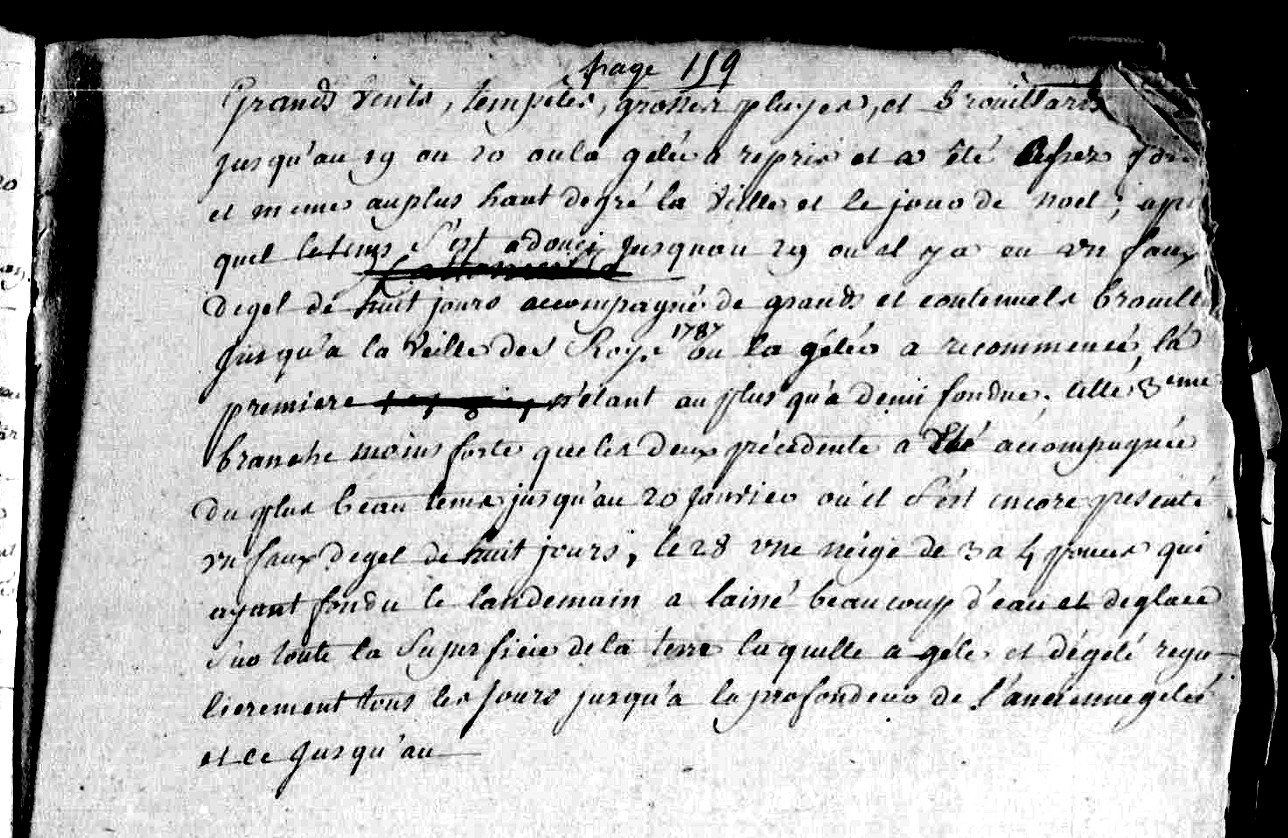 page 159
Grands vents, tempêtes, grosses pluyes, et brouillards
jusqu'au 19 ou 20 ou la gelée a repris et a été assez for
et meme au plus haut degré la veille et le jour de noel ; apr
quel le tems s'est adouci jusquau 29 ou il y a eu un faux
degel de huit jours accompagné de grands et contenuels brouill
jusqu'a la veille des Roys 1787 ou la gélée a recommencé, la
premiere n'étant au plus qu'a demi fondue. cette 3eme
branche moins forte que les deux précedente a été accompagnée
du plus beau tems jusqu'au 20 janvier ou il s'est encore presenté
un faux degel de huit jours, le 28 une neige de 3 a 4 pouces qui
ayant fondu le landemain a laissé beaucoup d'eau et de glace
sur toute la superficie de la terre laquelle a gélé et dégélé regu-
lierement tous les jours jusqu'a la profondeur de l'ancienne gelée
et ce jusqu'au